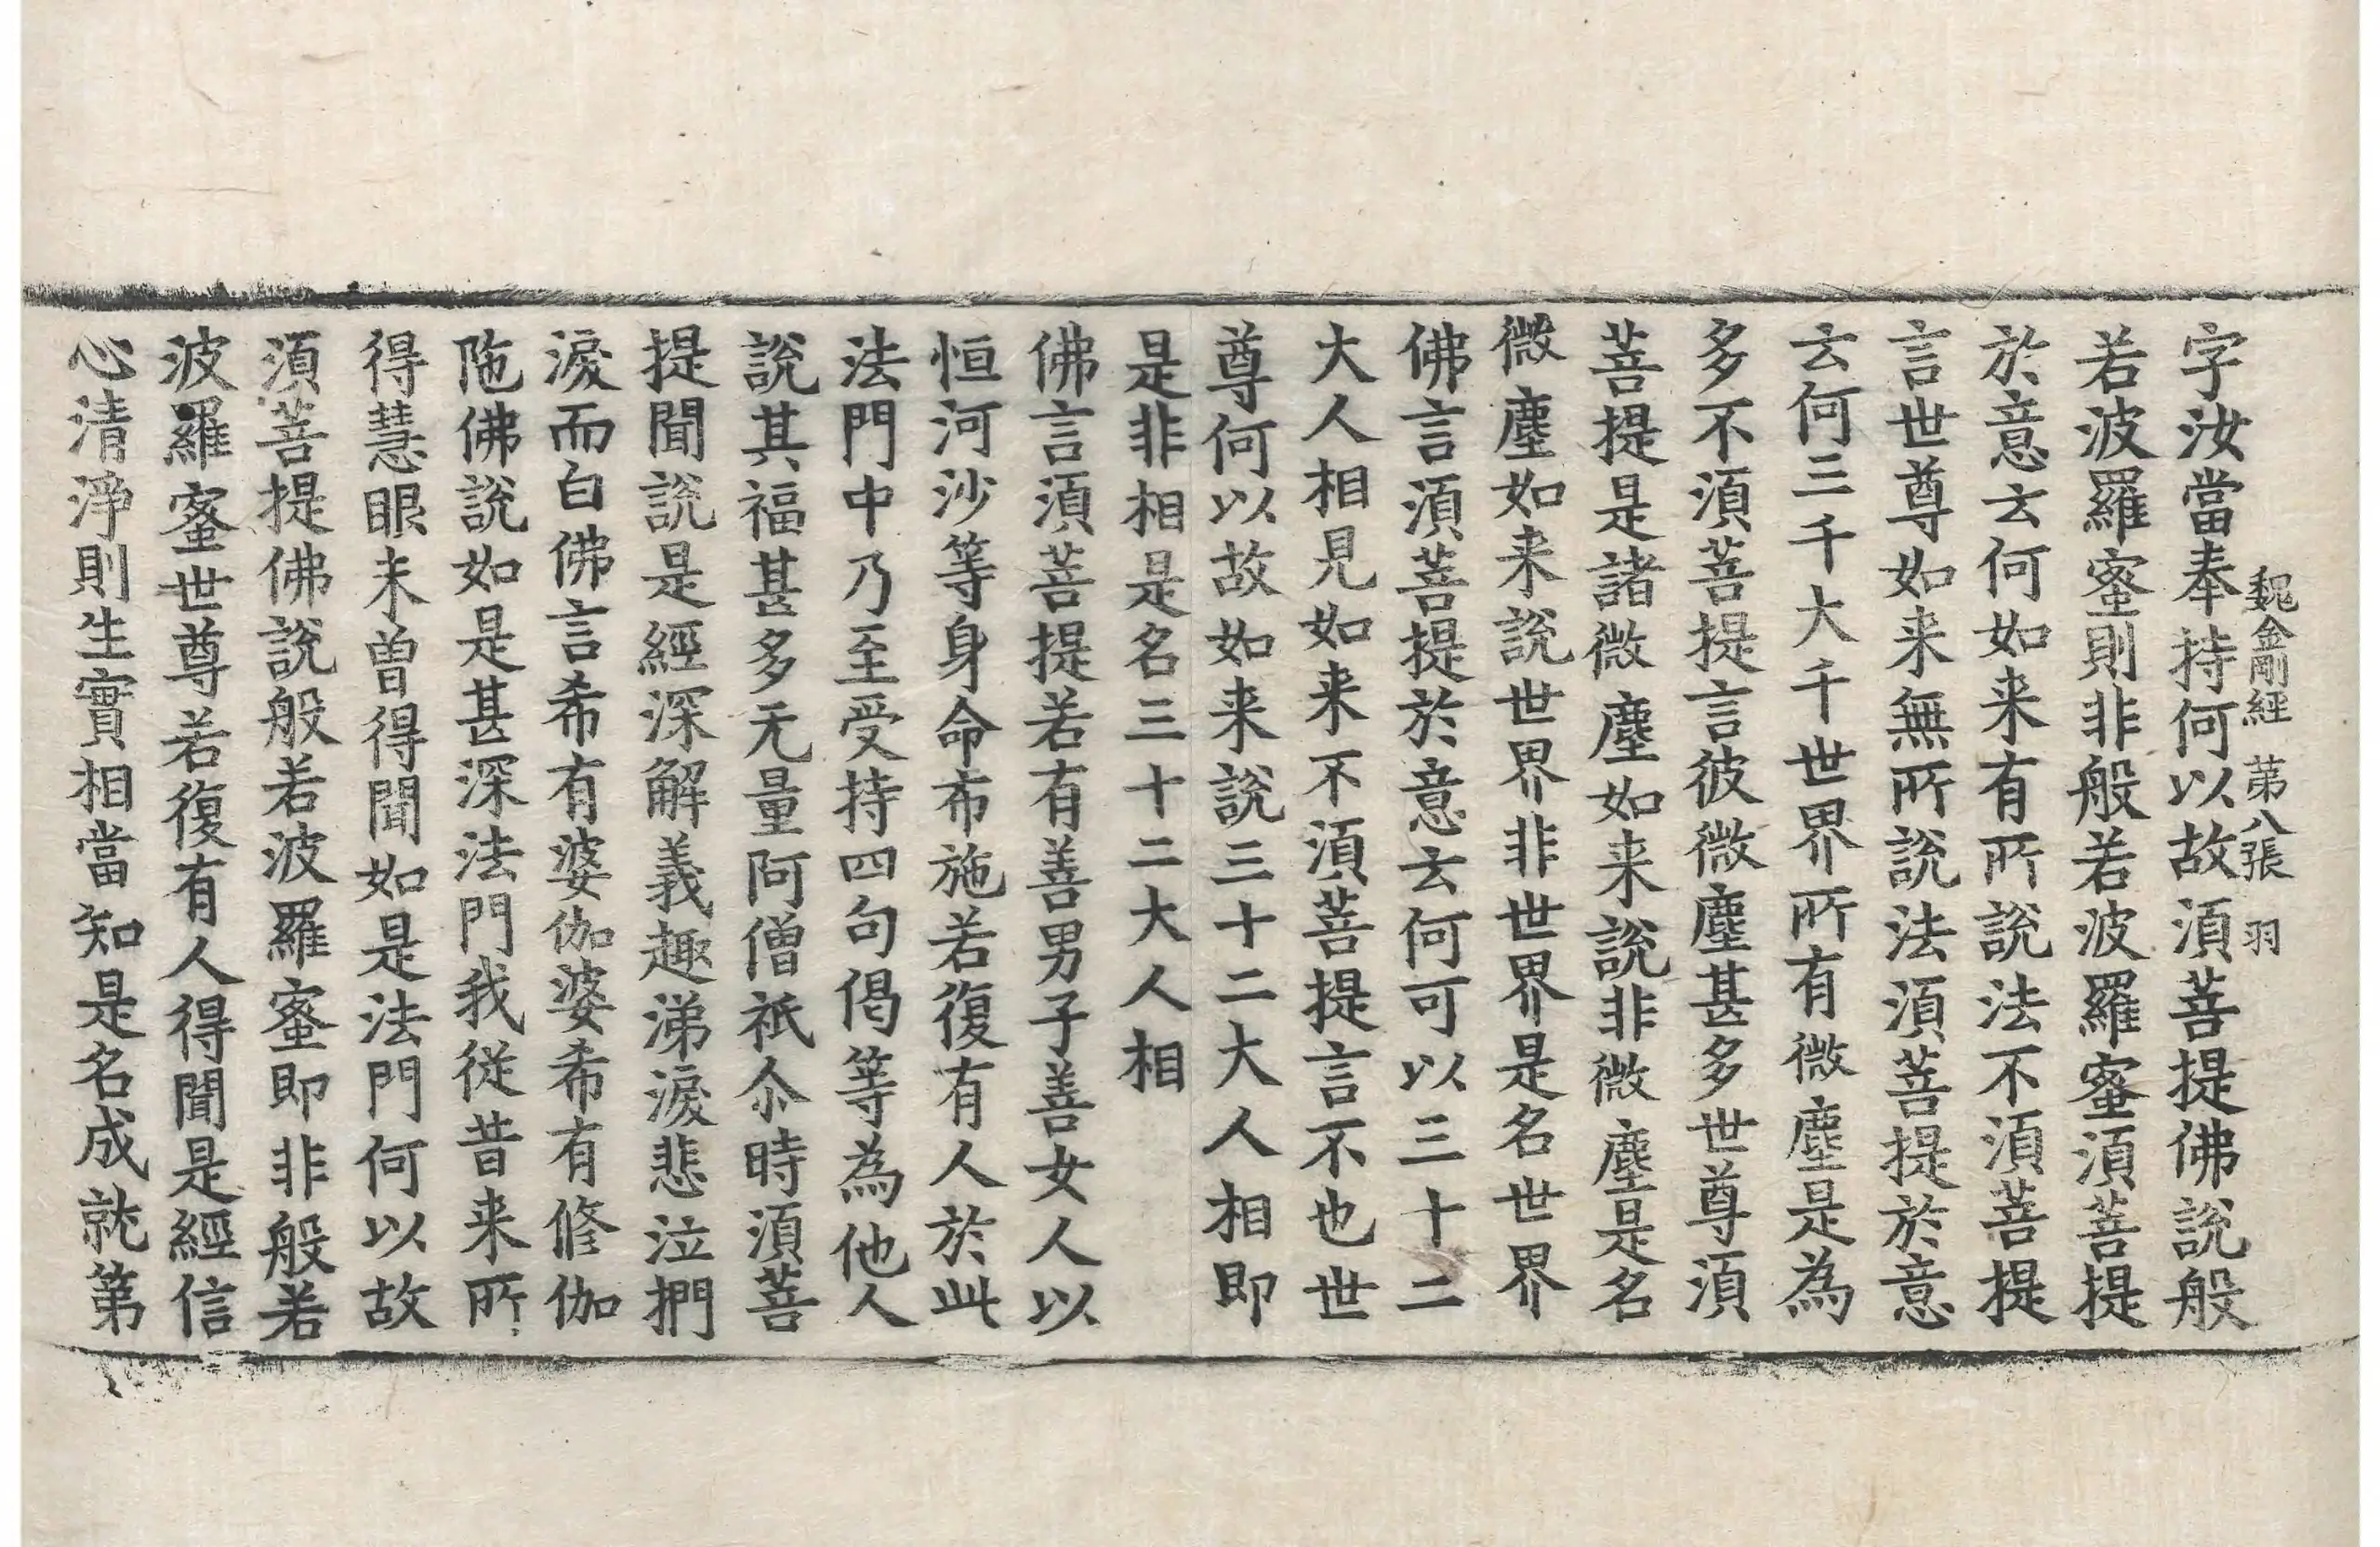 魏金剛經 第八張 羽
字汝當奉持何以故須菩提佛說般
若波羅蜜則非般若波羅蜜須菩提
於意云何如来有所說法不須菩提
言世尊如来無所說法須菩提於意
云何三千大千世界所有微塵是為
多不須菩提言彼微塵甚多世尊須
菩提是諸微塵如来說非微塵是名
微塵如来說世界非世界是名世界
佛言須菩提於意云何可以三十二
大人相見如来不須菩提言不也世
尊何以故如来說三十二大人相即
是非相是名三十二大人相
佛言須菩提若有善男子善女人以
恒河沙等身命布施若復有人於此
法門中乃至受持四句偈等為他人
說其福甚多无量阿僧祇尒時須菩
提聞說是經深解義趣涕淚悲泣捫
淚而白佛言希有婆伽婆希有修伽
陁佛說如是甚深法門我從昔来所
得慧眼未曽得聞如是法門何以故
須菩提佛說般若波羅蜜即非般若
波羅蜜世尊若復有人得聞是經信
心清淨則生實相當知是名成就第